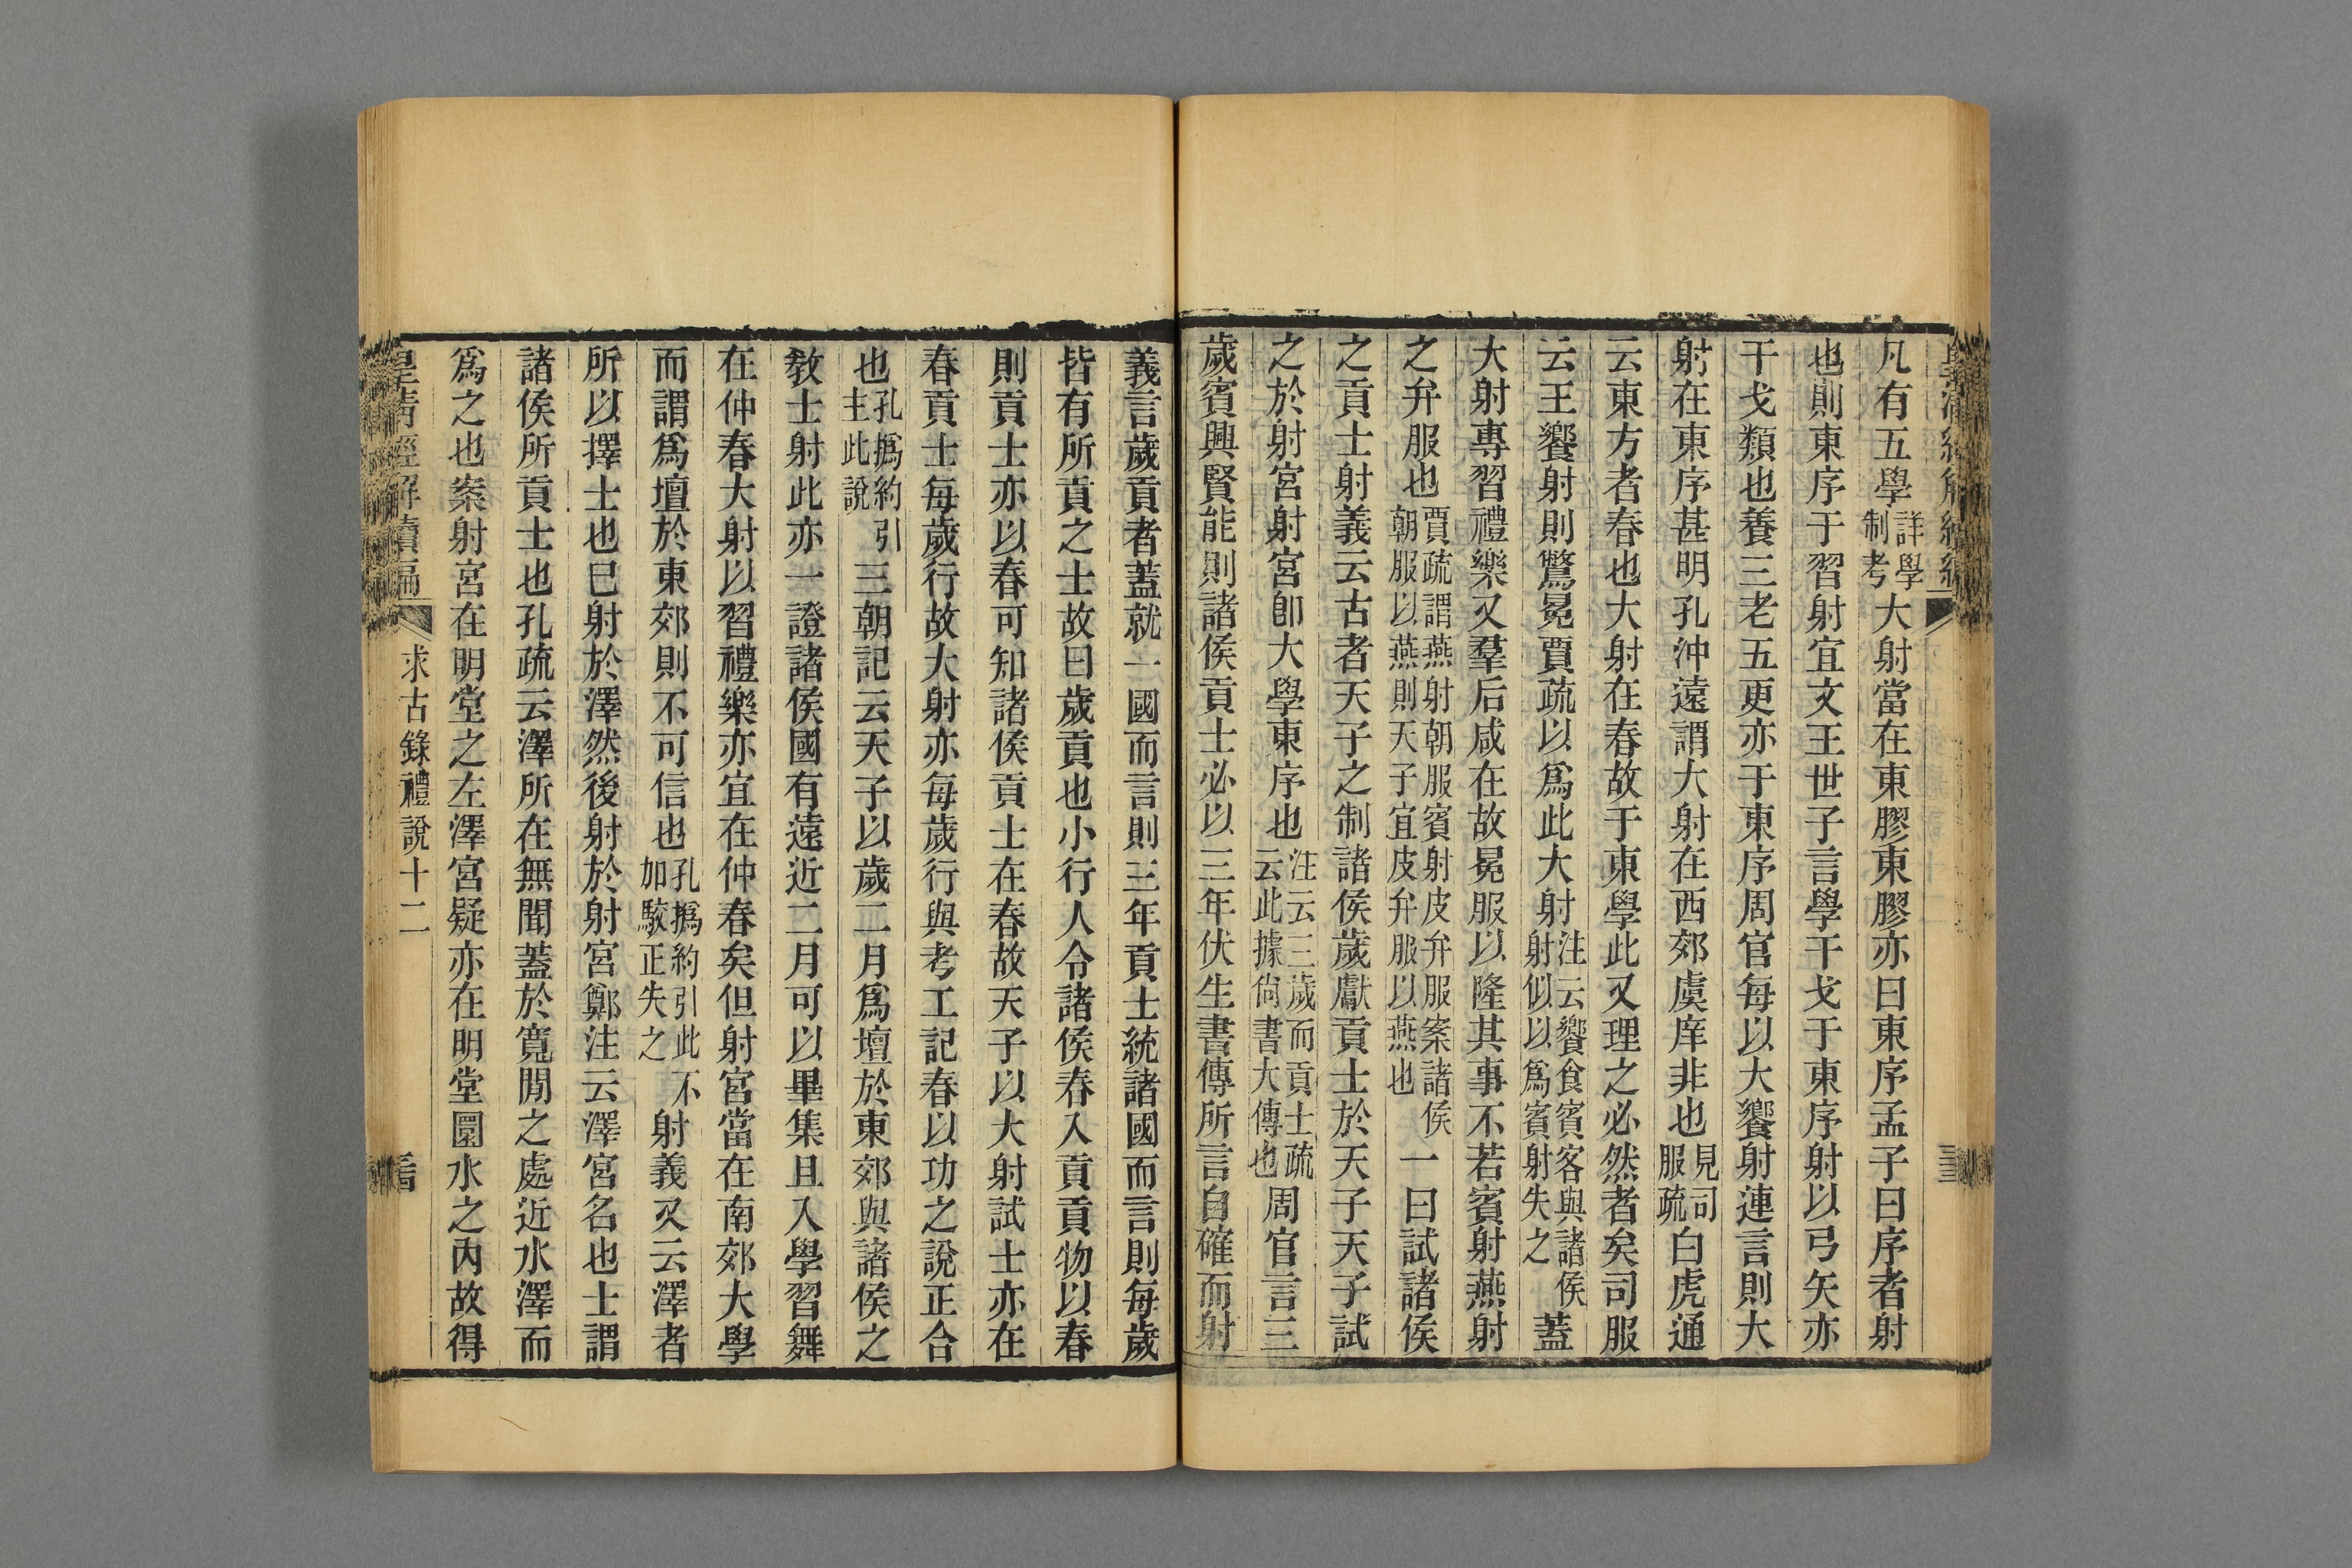 凡有五學詳學制考大射當在東膠東膠亦曰東序孟子曰序者射
也則東序于習射宜文王世子言學干戈于東序射以弓矢亦
干戈類也養三老五更亦于東序周官每以大饗射連言則大
射在東序甚明孔沖遠謂大射在西郊虞庠非也見司服疏白虎通
云東方者春也大射在春故于東學此又理之必然者矣司服
云王饗射則鷩冕賈疏以爲此大射注云饗食賓客與諸侯射似以爲賓射失之蓋
大射專習禮樂又羣后咸在故冕服以隆其事不若賓射燕射
之弁服也賈疏謂燕射朝服賓射皮弁服案諸侯朝服以燕則天子宜皮弁服以燕也一曰試諸侯
之貢士射義云古者天子之制諸侯歲獻貢士於天子天子試
之於射宮射宮卽大學東序也注云三歲而貢士疏云此據尙書大傳也周官言三
歲賓興賢能則諸侯貢士必以三年伏生書傳所言自確而射
義言歲貢者蓋就一國而言則三年貢士統諸國而言則每歲
皆有所貢之士故曰歲貢也小行人令諸侯春入貢貢物以春
則貢士亦以春可知諸侯貢士在春故天子以大射試士亦在
春貢士每歲行故大射亦每歲行與考工記春以功之說正合
也孔撝約引主此說三朝記云天子以歲二月爲壇於東郊與諸侯之
敎士射此亦一證諸侯國有遠近二月可以畢集且入學習舞
在仲春大射以習禮樂亦宜在仲春矣但射宮當在南郊大學
而謂爲壇於東郊則不可信也孔撝約引此不加駮正失之射義又云澤者
所以擇士也巳射於澤然後射於射宮鄭注云澤宮名也士謂
諸侯所貢士也孔疏云澤所在無聞蓋於寬閒之處近水澤而
爲之也案射宮在明堂之左澤宮疑亦在明堂圜水之內故得
皇淸經解續編
求古錄禮說十二